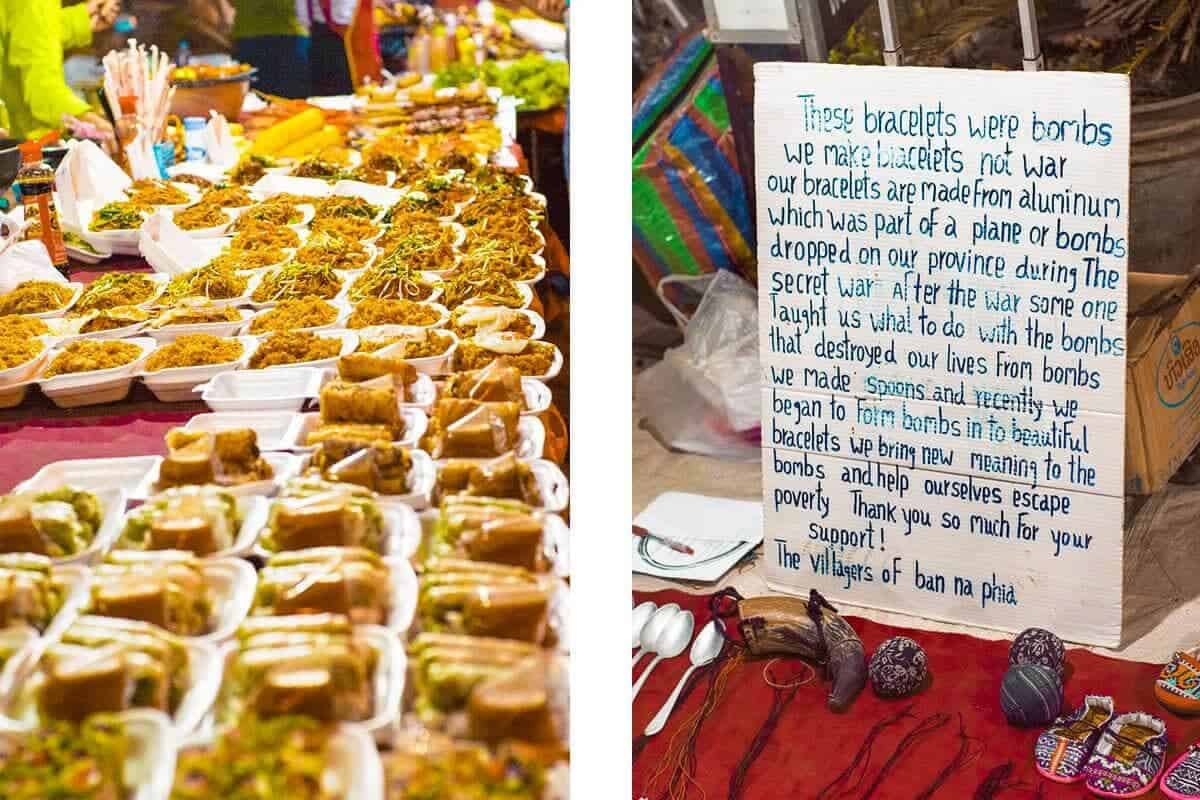 These bracelets were bombs
we make bracelets not war
our bracelets are made from aluminum
which was part of a plane or bombs
dropped on our province during The
secret war. After the war some one
Taught us what to do with the bombs
that destroyed our lives From bombs
we made spoons and recently we
began to Form bombs in to beautiful
bracelets we bring new meaning to the
bombs and help ourselves escape
poverty Thank you so much For your
support!
The villagers of ban na phia